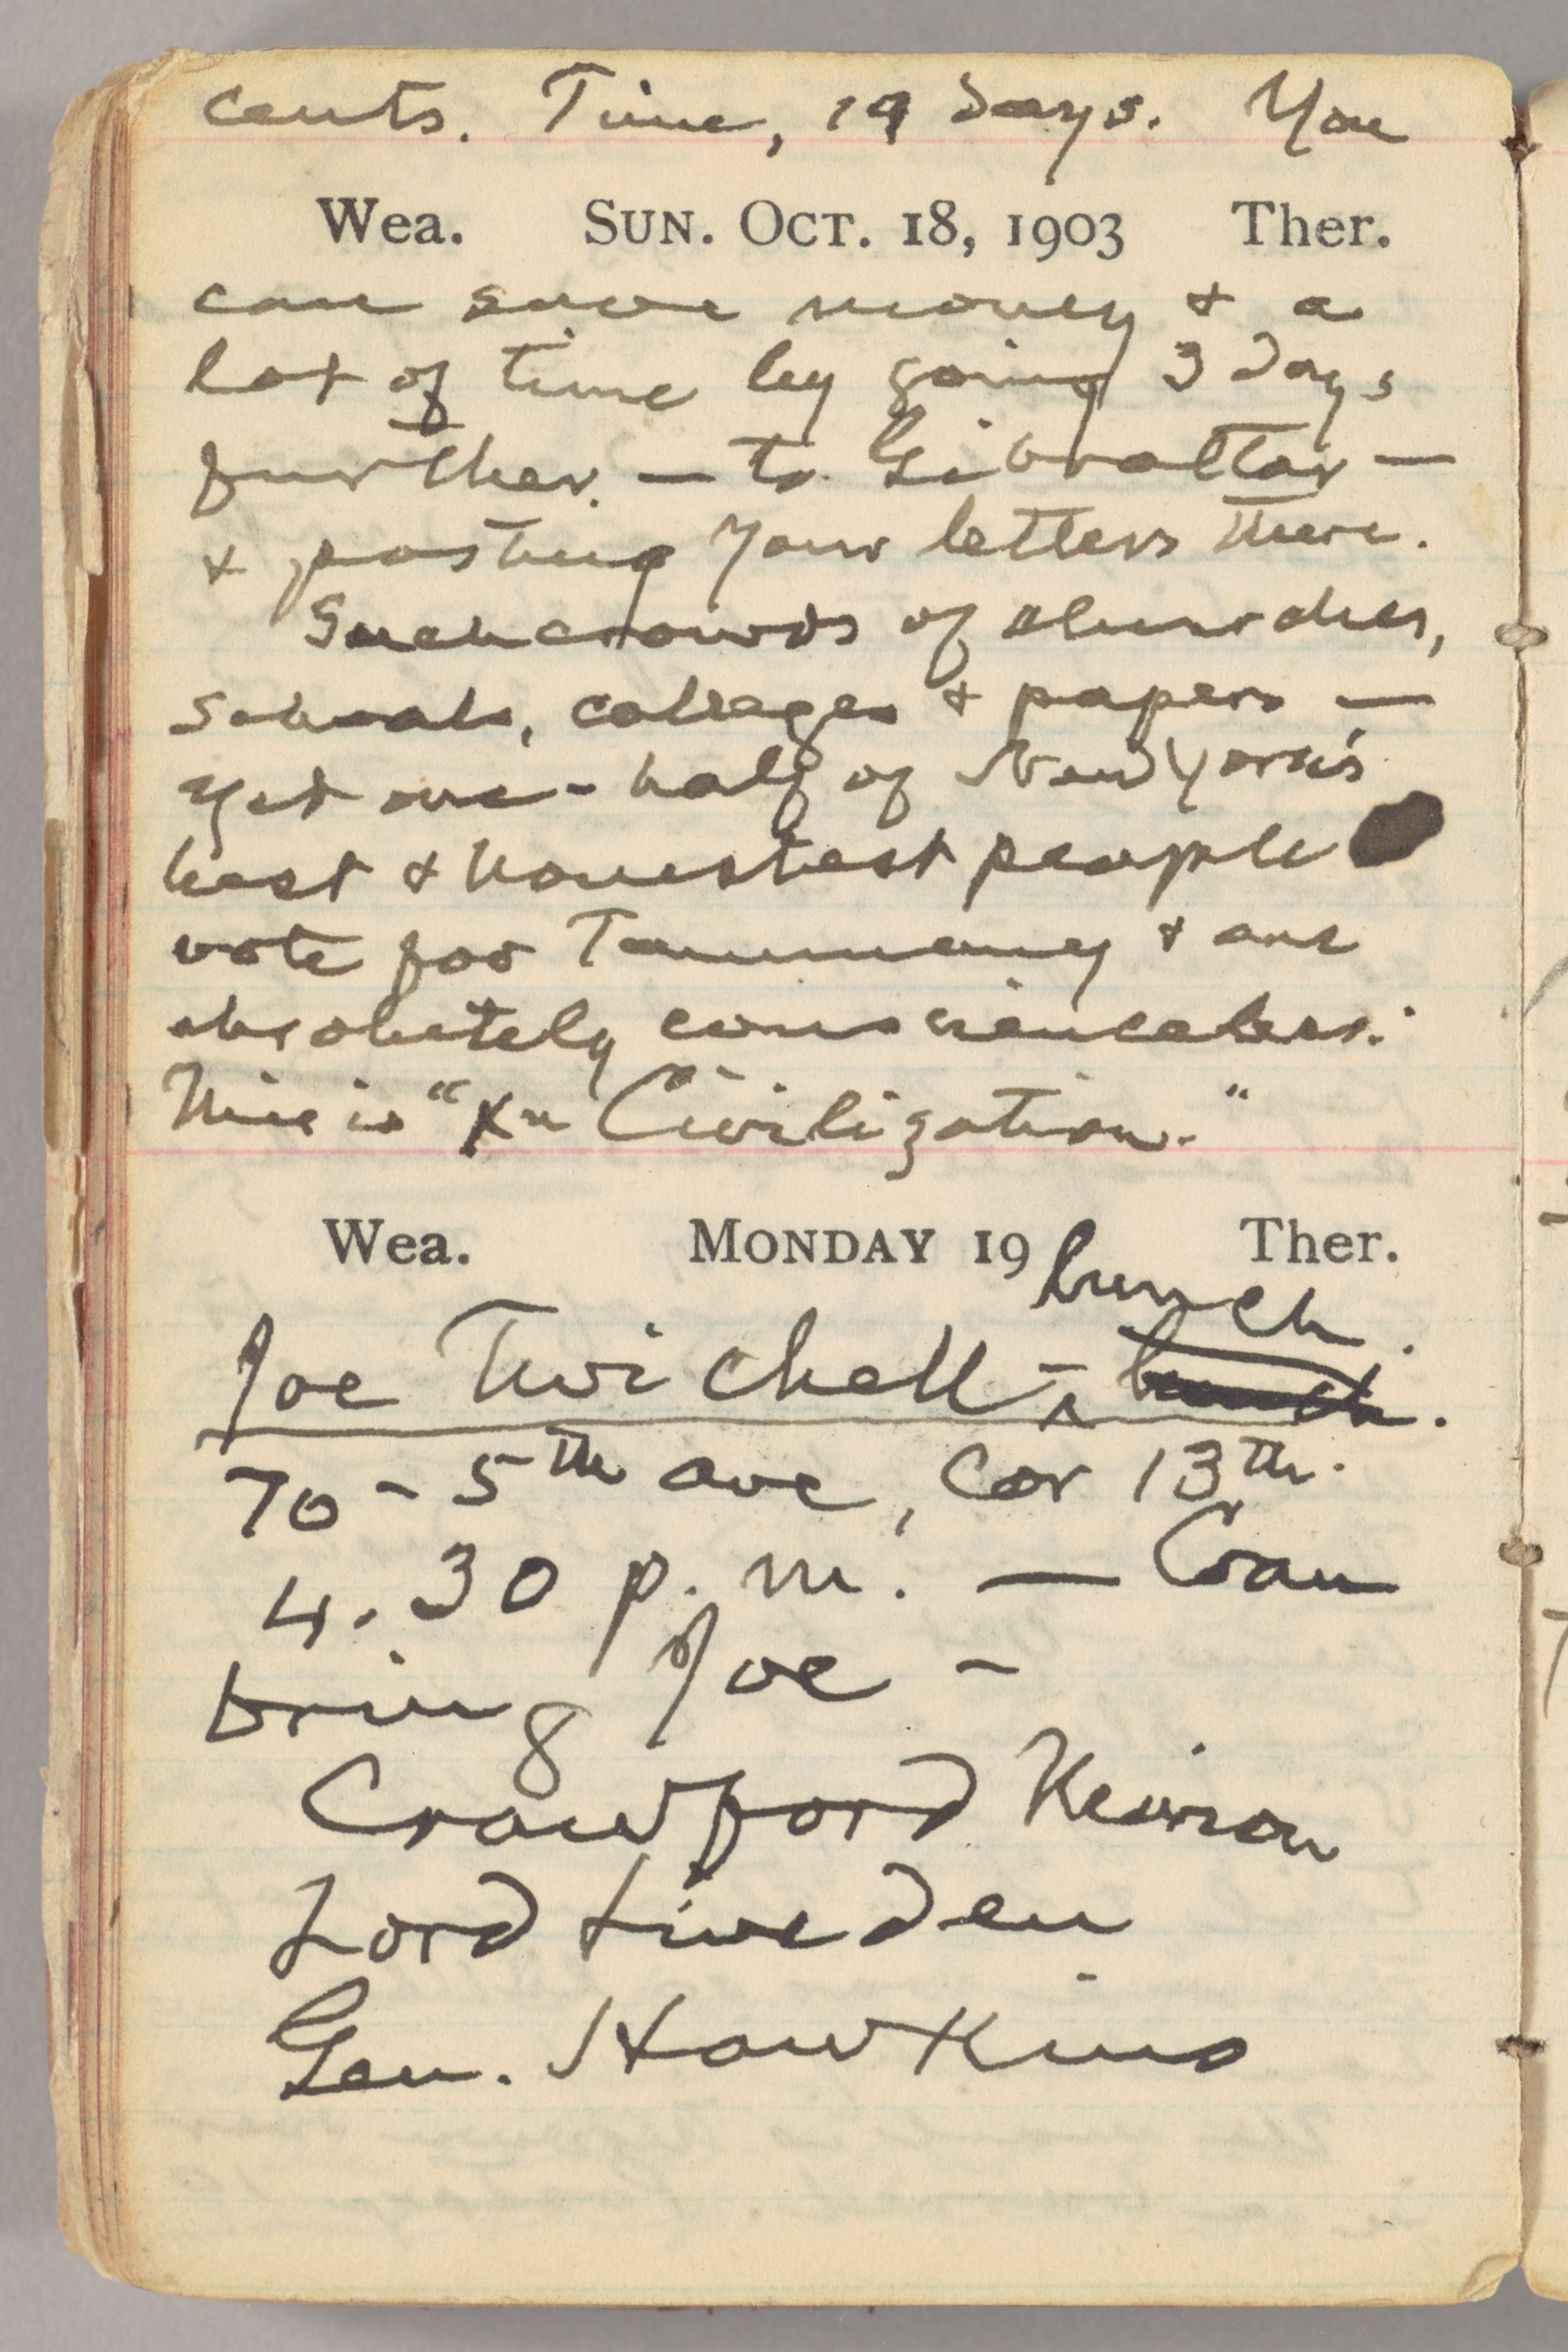 cents. Time, 19 days. You
Wea. SUN. OCT. 18, 1903 Ther.
can save money & a
lot of time by going 3 days
further. — to Gibraltar —
& posting your letters there.
Such crowds of churches,
schools, colleges & papers —
yet one-half of New York's
best & honestest people
vote for Tammany & are
absolutely conscienceless.
This is "Xn Civilization."
Wea. MONDAY 19 Ther.
lunch.
Joe Twichell - ^ lunch.
70 - 5th ave, cor 13th.
4.30 p.m. — Can
bring Joe -
Crawford
Lord Liveden
Gen. Hawkins